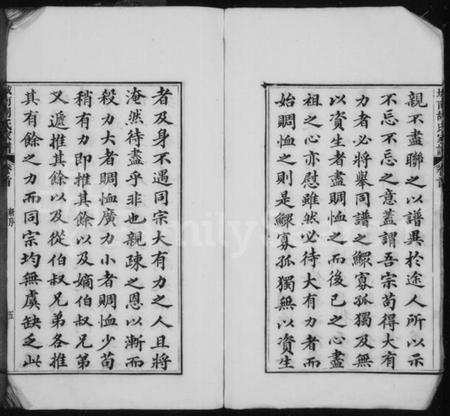 親不盡聯之以譜異於途人所以示
不忘不忘之意蓋謂吾宗苟得大有
力者必將舉同譜之鰥寡孤獨及無
以資生者盡賙恤之而後己之心盡
祖之心亦慰雖然必待大有力者而
始賙恤之則是鰥寡孤獨無以資生
者及身不遇同宗大有力之人且將
淹然待盡乎非也親疎之恩以漸而
殺力大者賙恤廣力小者賙恤少苟
稍有力即推其餘以及嫡伯叔兄弟
又遞推其餘以及從伯叔兄弟各推
其有餘之力而同宗均無虞缺乏此
卷首
五
FamilySearch